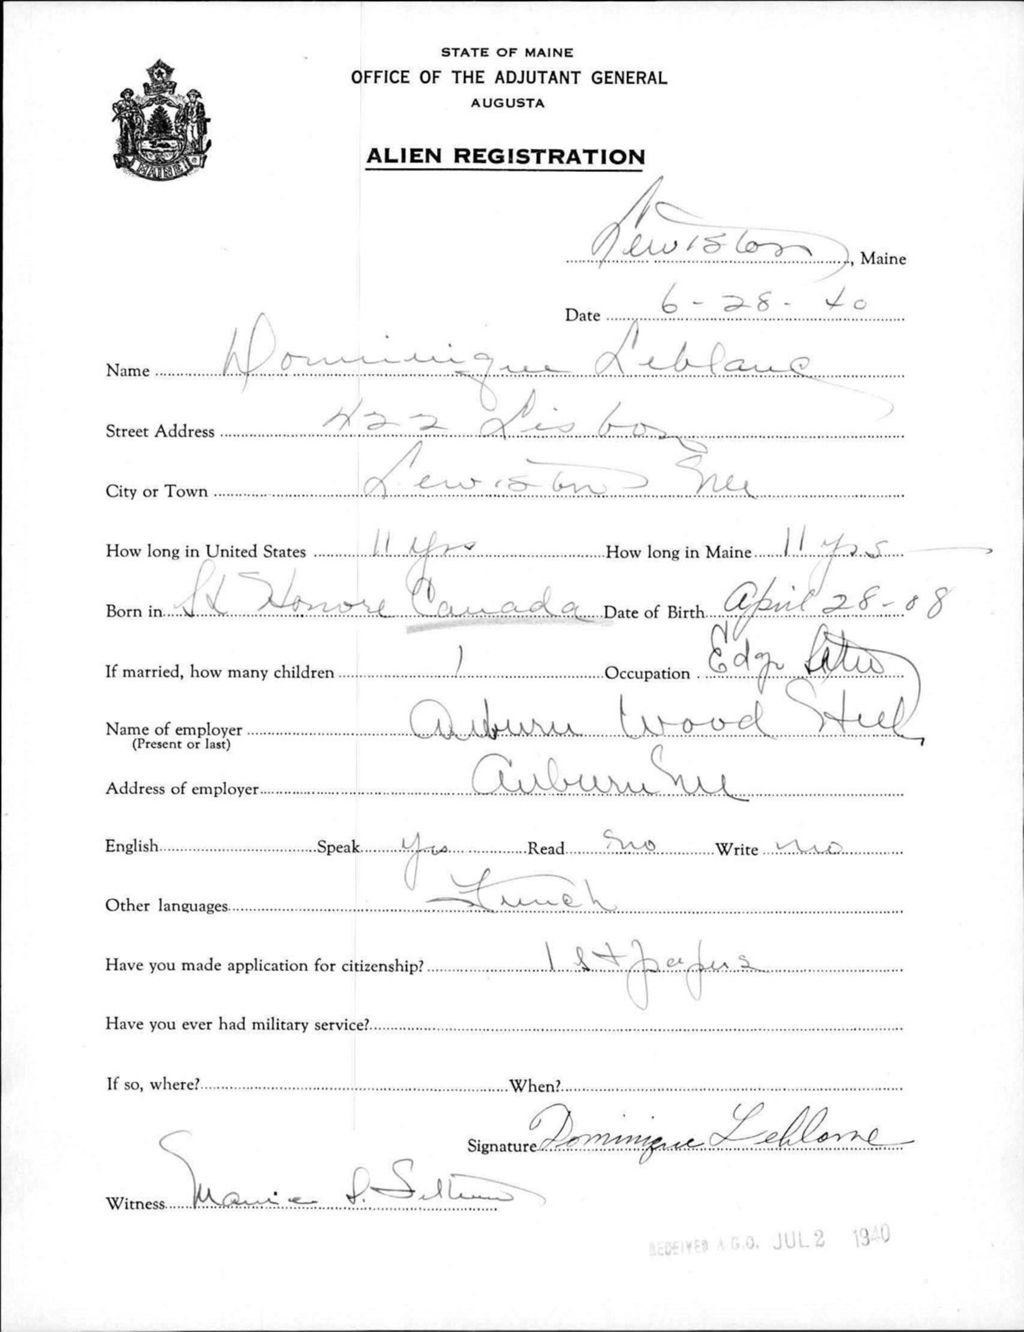 STATE OF MAINE
OFFICE OF THE ADJUTANT GENERAL
AUGUSTA
MAINE
ALIEN REGISTRATION
Lewiston, Maine
Date 6-28-40
Name Dominique Leblanc
Street Address 422 Lisbon
City or Town Lewiston Me
How long in United States 11 yrs How long in Maine 11 yrs
Born in St Honore Canada Date of Birth April 28-08
If married, how many children 1 Occupation Edge
Name of employer Auburn Wood Heel
(Present or last)
Address of employer Auburn Me
English Speak yes Read no Write no
Other languages French
Have you made application for citizenship? 1st papers
Have you ever had military service?
If so, where? When?
Signature Dominique Leblanc
Witness Maurice L.
RECEIVED A.G.O. JUL 2 1940